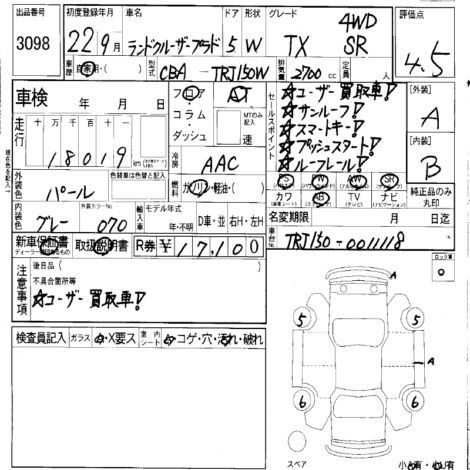 出品番号 初度登録年月 車名 ドア 形状 グレード 評価点
3098 22年9月 ランドクルーザープラド 5 W TX 4WD SR 4.5
車歴 自家用・( ) 型式 CBA-TRJ150W 排気量 2700 cc 定員 人
車検 年 月 日
フロア AT
コラム MTのみ記入
ダッシュ 速
セールスポイント
☆ユーザー買取車!
☆サンルーフ!
☆スマートキー!
☆プッシュスタート!
☆ルーフレール!
[外装] A
[内装] B
走行 十万千百十一
18019 km
冷房 AAC
外装色 パール
色替車は色替と記入
燃料 ガソリン・軽油・( )
PS PW AW SR
カワ AB TV ナビ
純正品のみ丸印
内装色 グレー 外装カラーNo. 070
輸入車 モデル年式 年・不明 D車・並 右H・左H
名変期限 月 日迄
新車保証書 取扱説明書 R券 ¥17,100
ディーラー
車台No. TRJ150-0011118
注意事項 後日品( )
不具合箇所等
☆ユーザー買取車!
ロック車
検査員記入 ガラス ・X要ス 車内シート コゲ・穴・汚れ・破れ
A
5 5
A
6 6
スペア
現在色を記入